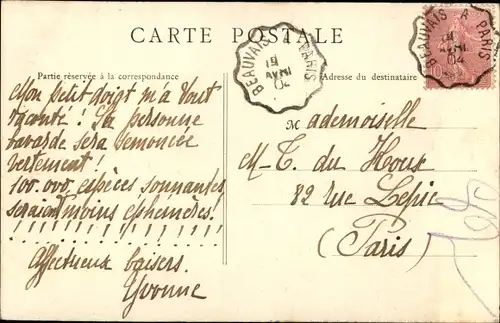 CARTE POSTALE
BEAUVAIS A PARIS
19
AVRIL
04
BEAUVAIS A PARIS
19
AVRIL
04
Partie réservée à la correspondance
Adresse du destinataire
Mon petit doigt m'a tout
raconté! La personne
bavarde sera semoncée
vertement!
100.000, espèces sonnantes
seraient moins éphémères!
! ! ! ! ! ! ! ! ! ! ! ! ! ! ! !
Affectueux baisers.
Yvonne
Mademoiselle
M-T. du Houx
82 rue Lepic
(Paris)